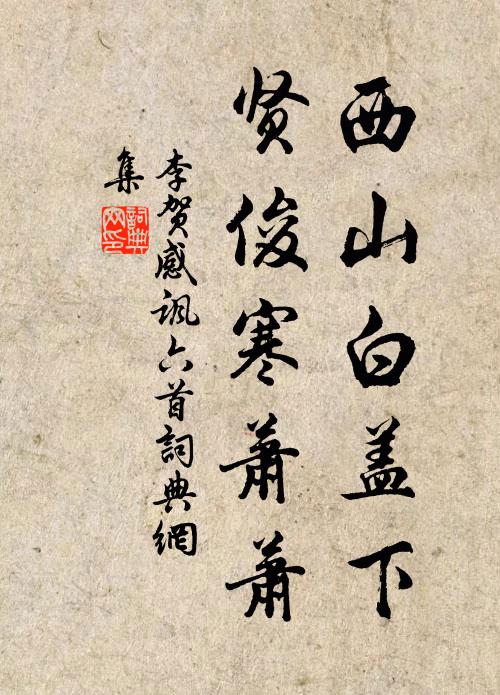 西山白盖下
贤俊寒萧萧
李贺感讽六首詞典網
集
詞典
网印